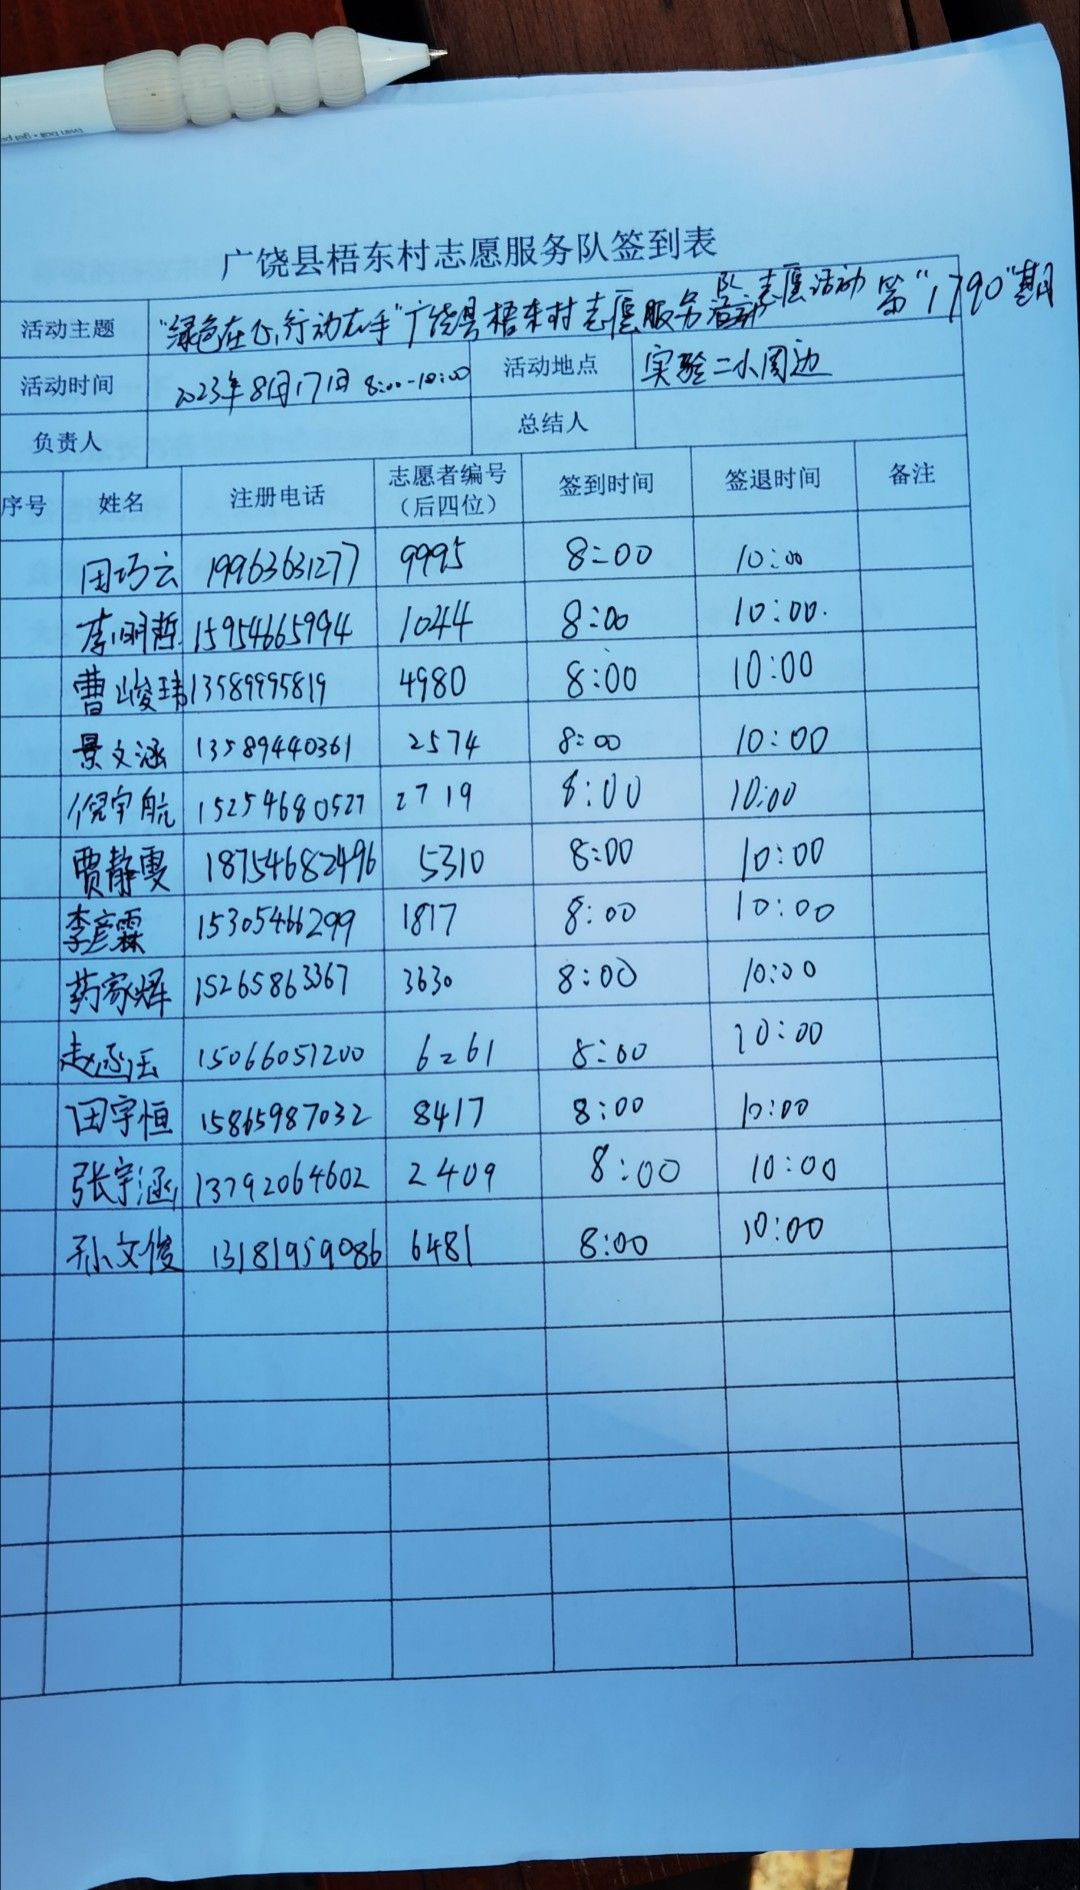 广饶县梧东村志愿服务队签到表
活动主题 "绿色在心,行动在手"广饶县梧东村志愿服务队志愿活动 第"1790"期
活动时间 2023年8月17日 8:00-10:00 活动地点 实验二小周边
负责人 总结人
序号 姓名 注册电话 志愿者编号（后四位） 签到时间 签退时间 备注
田巧云 19963631277 9995 8:00 10:00
李明哲 15954665994 1044 8:00 10:00.
曹峻玮 13589995819 4980 8:00 10:00
景文涵 13589440361 2574 8:00 10:00
倪宇航 15254680527 2719 8:00 10:00
贾静雯 18754682496 5310 8:00 10:00
李彦霖 15305466299 1817 8:00 10:00
药家辉 15265863367 3630 8:00 10:00
赵 15066051200 6261 8:00 10:00
田宇恒 15865987032 8417 8:00 10:00
张宇涵 13792064602 2409 8:00 10:00
孙文俊 13181959086 6481 8:00 10:00